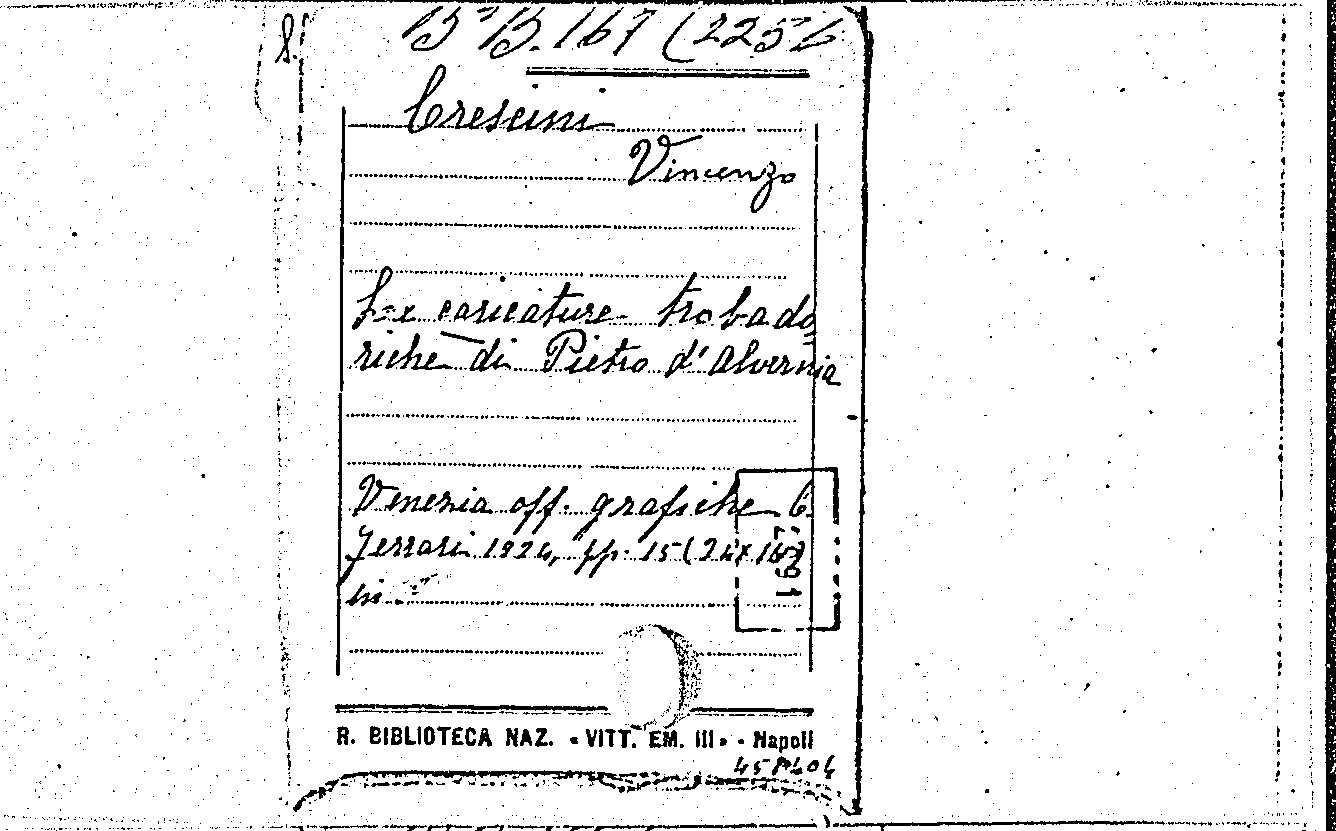 B^a B. 167 (225 6
Crescini
Vincenzo
Le caricature trobado=
riche di Pietro d'Alvernia
Venezia off. grafiche C.
Ferrari 1924, pp. 15 (24x16)
in
1927
R. BIBLIOTECA NAZ. «VITT. EM. III» - Napoli